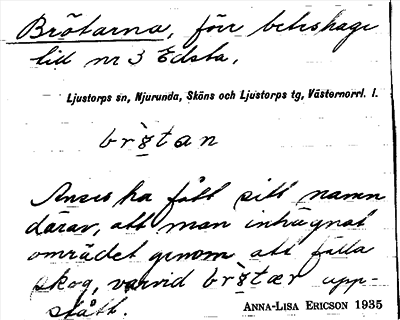 Brötarna, förr beteshage
till nr 3 Edsta.
Ljustorps sn, Njurunda, Sköns och Ljustorps tg, Västernorrl. l.
br`øtan
Anses ha fått sitt namn
därav, att man inhägnat
området genom att fälla
skog, varvid br`øtær upp-
stått.
ANNA-LISA ERICSON 1935